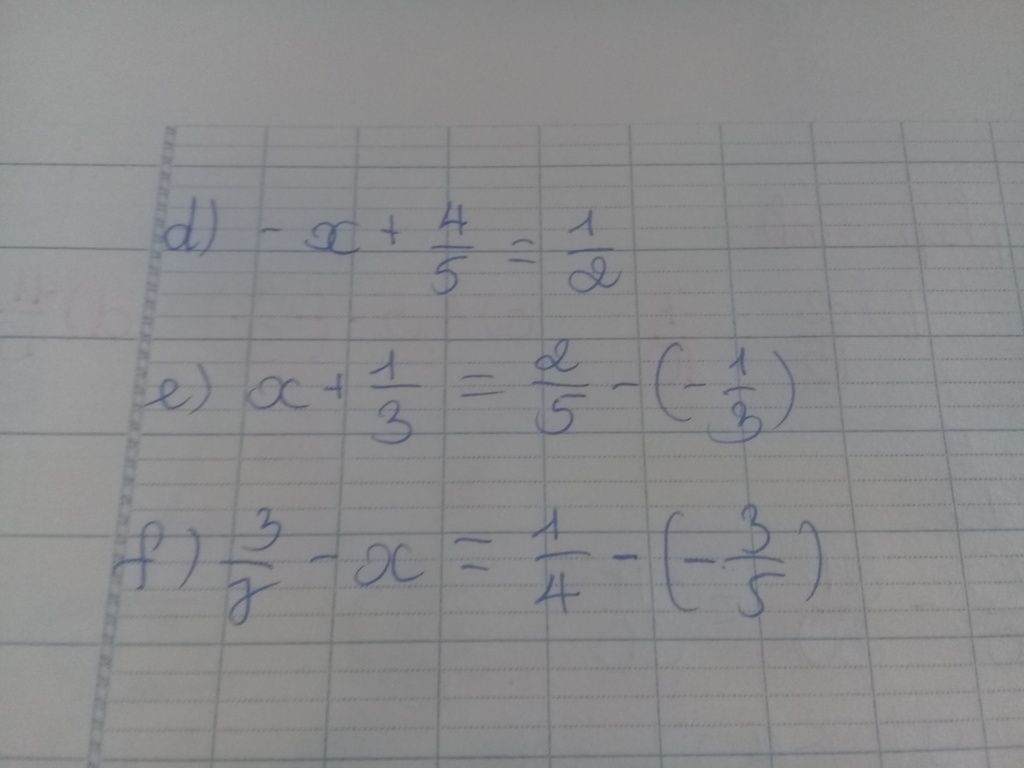 d) - x + 4/5 = 1/2
e) x + 1/3 = 2/5 - (-1/3)
f) 3/7 - x = 1/4 - (-3/5)